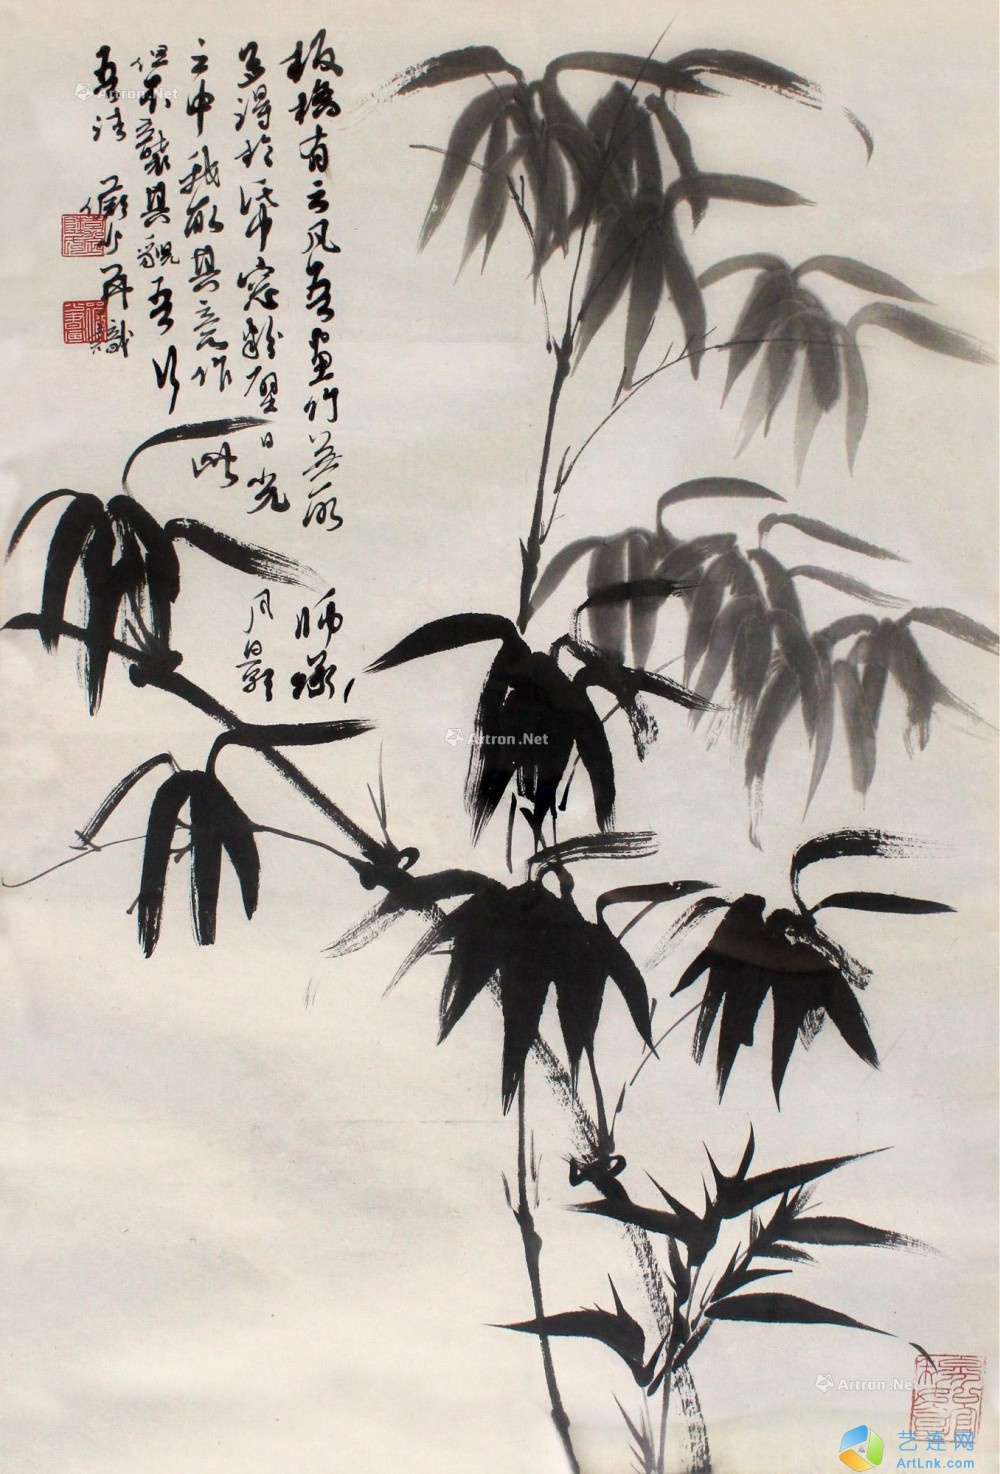 板桥有云凡吾画竹无所师承
多得于纸窗粉壁日光月影
之中我取其意作此
但不袭其貌吾行
吾法 少 再识
Artron.Net
Artron.Net
Artron.Net
艺连网
ArtLnk.com